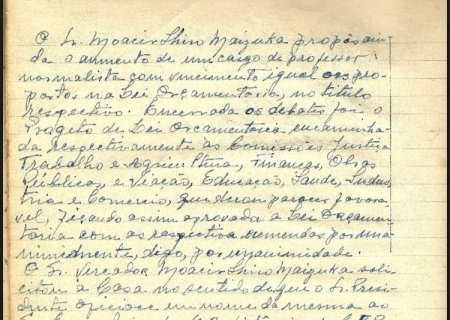 O Sr. Moacir Shiro Maizuka propôs ain-
da o aumento de um cargo de professor
normalista com vencimento igual aos pro-
postos na Lei Orçamentária, no título
respectivo. Encerrada os debates foi o
Projeto de Lei Orcamentária encaminha-
da respectivamente às Comissões Justiça
Trabalho e Agricultura, Finanças, Obras
Públicas e Viação, Educação, Saude, Indus-
tria e Comercio, que deram parecer favora-
vel, ficando assim aprovada a Lei Orçamen-
tária com as respectiva emendas por una
nimidmente, digo, por unanimidade.
O Sr. Vereador Moacir Shiro Maizuka soli-
citou a Casa no sentido de que o Sr. Presi-
dente oficiasse em nome da mesma ao